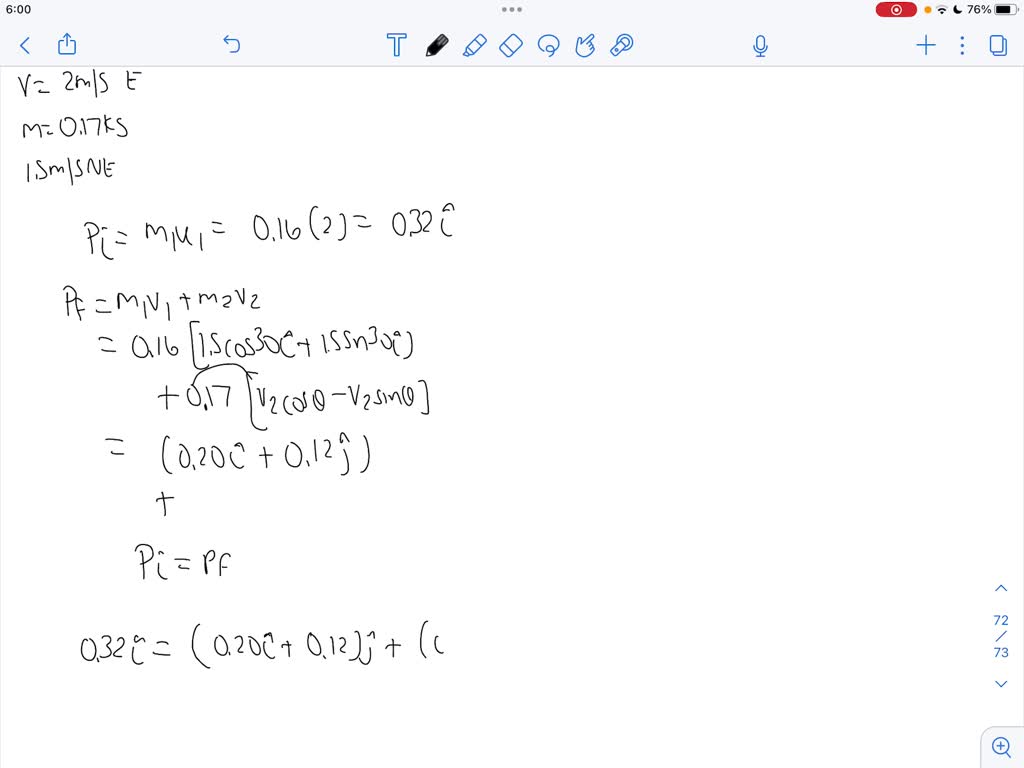 6:00
76%
V = 2m/s E
m=0.17kg
1.5m/s NE
Pi = m1u1 = 0.16(2) = 0.32î
Pf = m1v1 + m2v2
= 0.16 [1.5cos30î + 1.5sin30î)
+ 0.17 [v2cosθ - v2sinθ]
= (0.20î + 0.12ĵ)
+
Pi = Pf
0.32î = (0.20î + 0.12)ĵ + (0
72
/
73